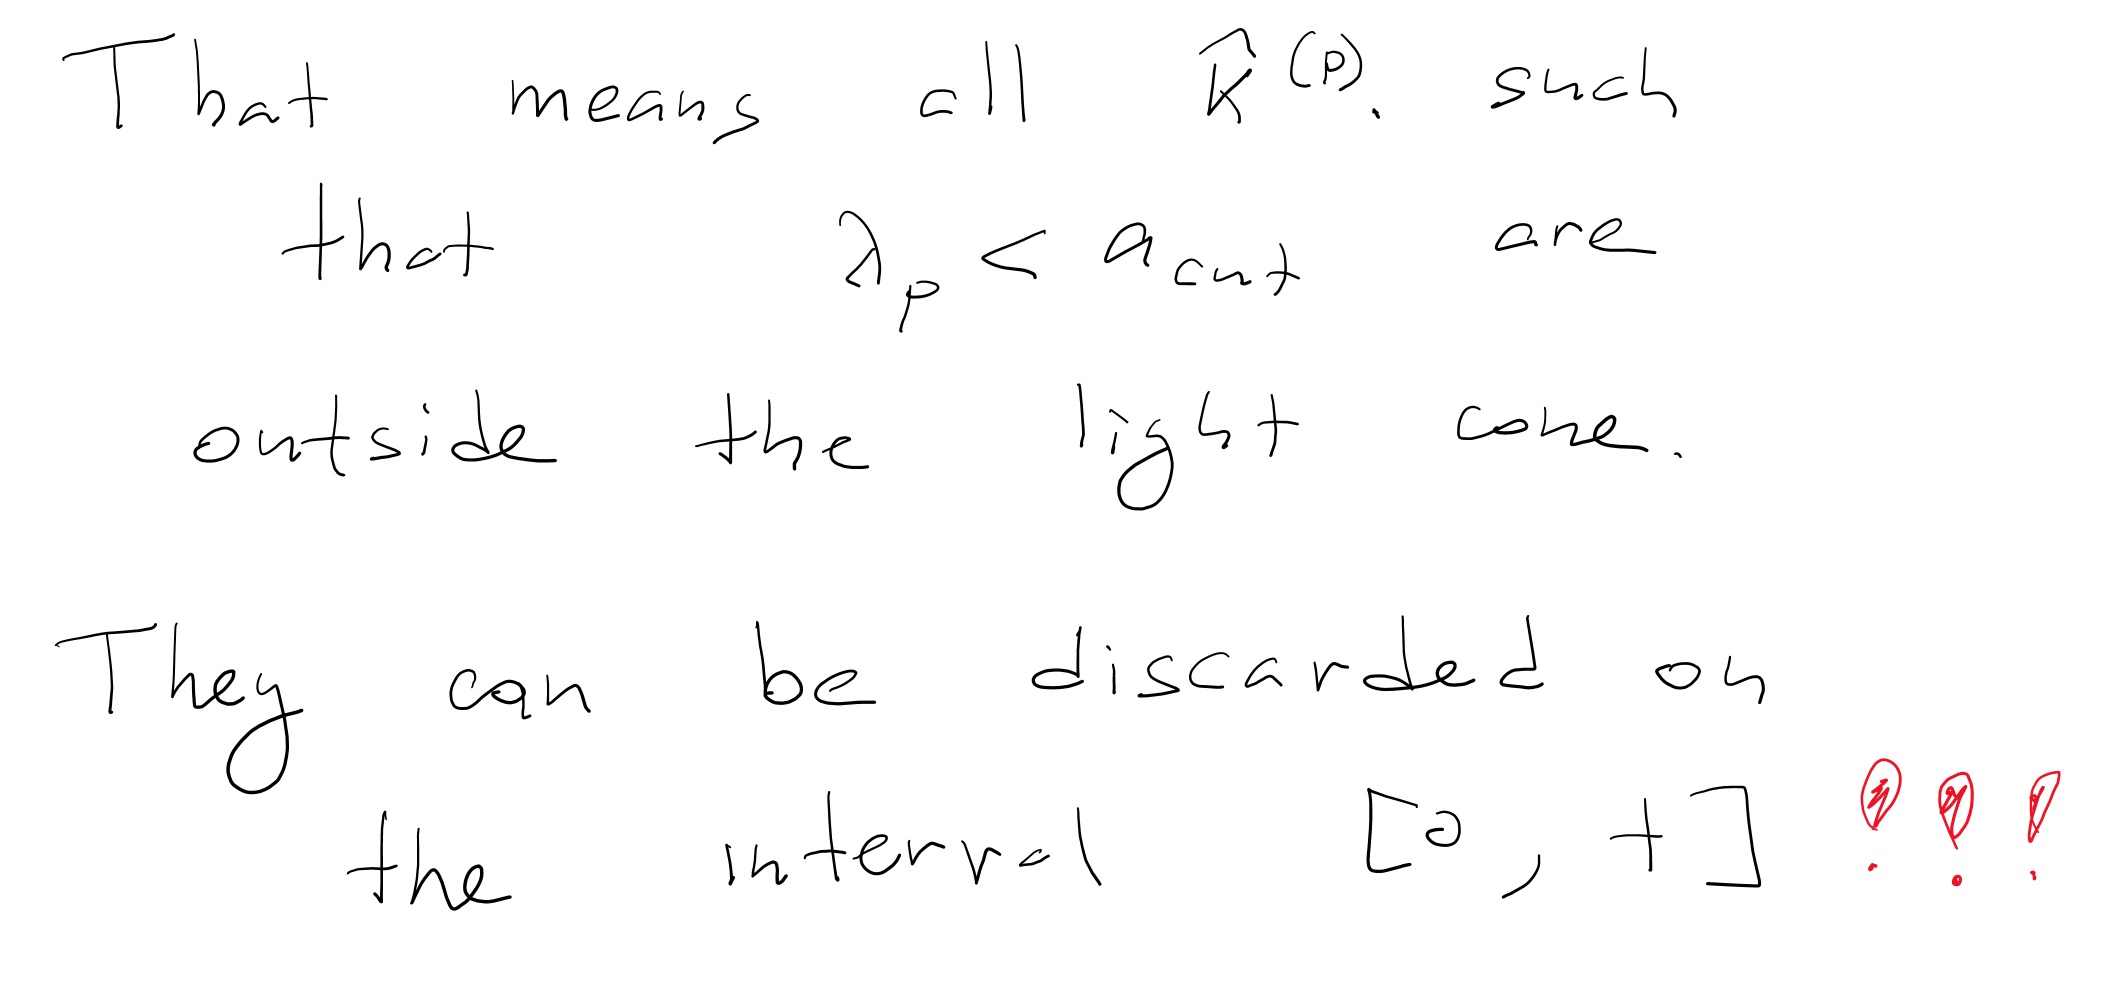 That means all κ̂⁽ᵖ⁾. such
that λ_p < a_cut are
outside the light cone.
They can be discarded on
the interval [0, t] !!!